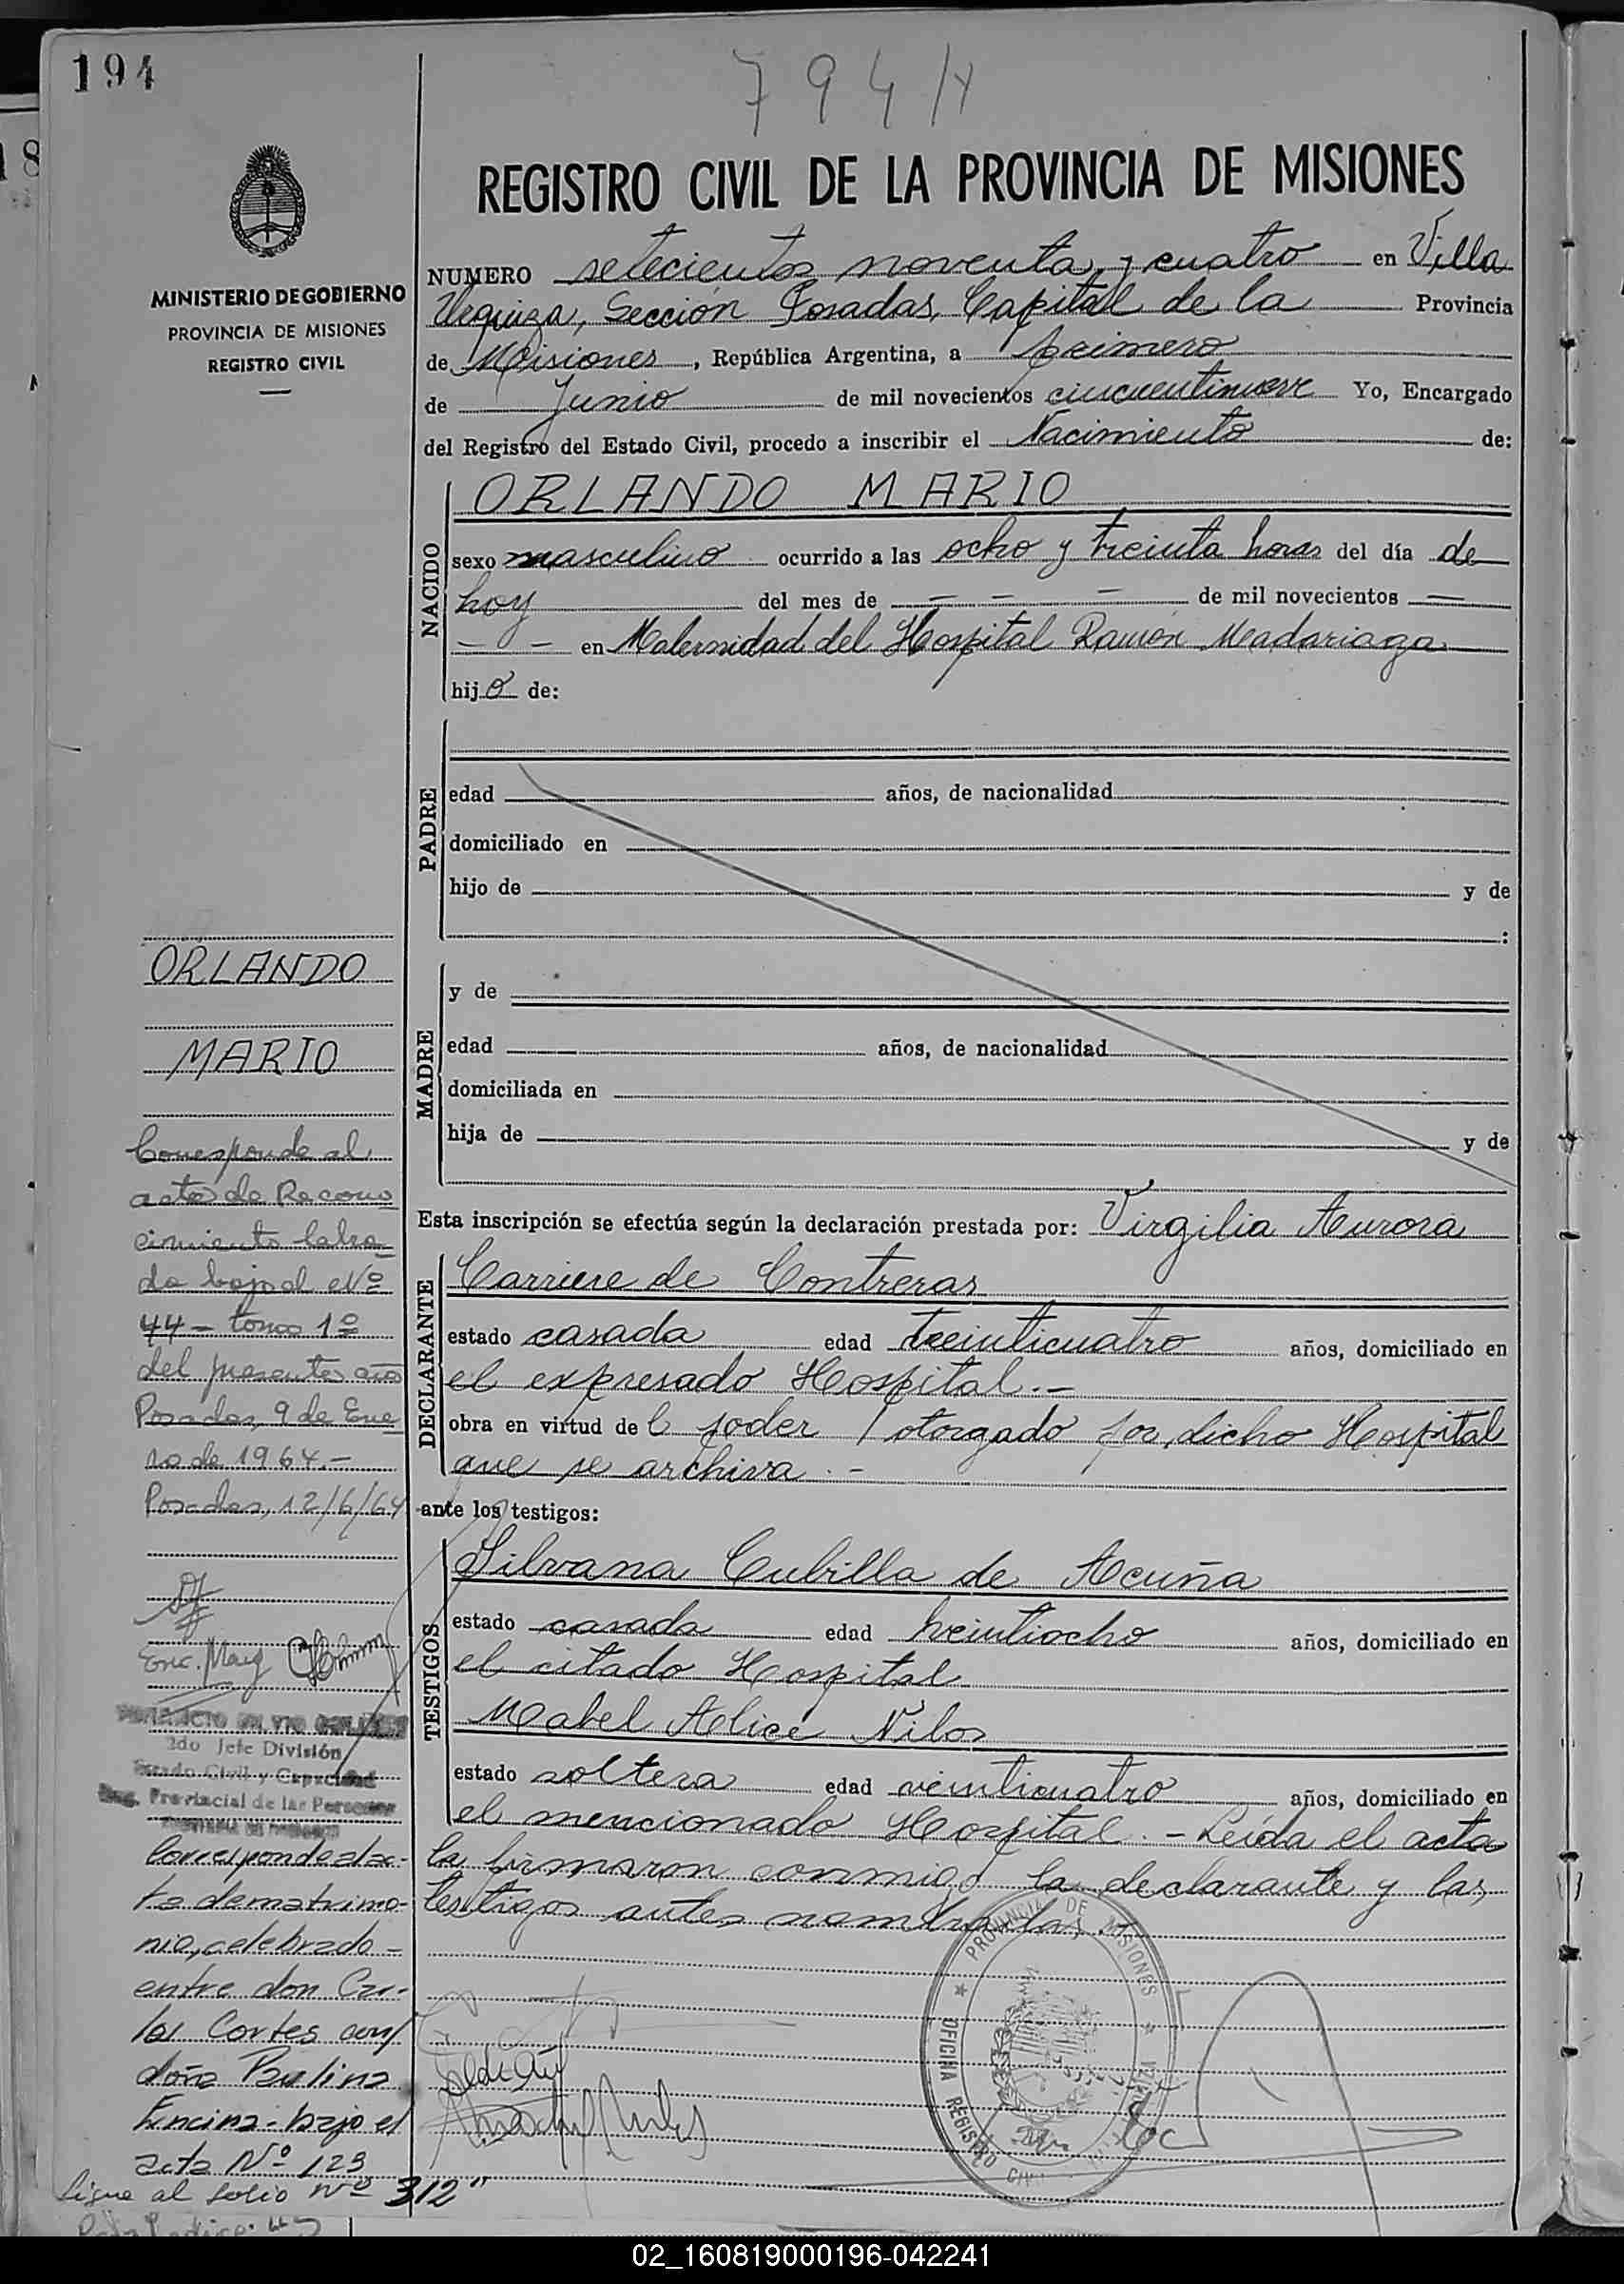 194
794/4
REGISTRO CIVIL DE LA PROVINCIA DE MISIONES
MINISTERIO DE GOBIERNO
PROVINCIA DE MISIONES
REGISTRO CIVIL
NUMERO setecientos noventa y cuatro en Villa
Urquiza, Sección Posadas, Capital de la Provincia
de Misiones, República Argentina, a primero
de Junio de mil novecientos cincuentinueve Yo, Encargado
del Registro del Estado Civil, procedo a inscribir el Nacimiento de:
NACIDO
ORLANDO MARIO
sexo masculino ocurrido a las ocho y treinta horas del día de
hoy del mes de — — — de mil novecientos —
— — en Maternidad del Hospital Ramón Madariaga
hijo de:
PADRE
edad años, de nacionalidad
domiciliado en
hijo de y de
:
MADRE
y de
edad años, de nacionalidad
domiciliada en
hija de y de
Esta inscripción se efectúa según la declaración prestada por: Virgilia Aurora
DECLARANTE
Carriere de Contreras
estado casada edad treinticuatro años, domiciliado en
el expresado Hospital.-
obra en virtud del poder otorgado por dicho Hospital
que se archiva.-
ante los testigos:
TESTIGOS
Silvana Cubilla de Acuña
estado casada edad treintiocho años, domiciliado en
el citado Hospital
Mabel Alice Nilos
estado soltera edad veinticuatro años, domiciliado en
el mencionado Hospital.- Leída el acta
la firmaron conmigo la declarante y las
testigos antes nombradas.
PROVINCIA DE MISIONES
OFICINA REGISTRO CIVIL
ORLANDO
MARIO
Corresponde al
acta de Recono
cimiento labra
da bajo el Nº
44 - tomo 1º
del presente año
Posadas, 9 de Ene
ro de 1964.-
Posadas, 12/6/64
Enc. Marg
2do Jefe División
Estado Civil y Capacidad
Reg. Provincial de las Personas
Corresponde al ac-
ta de matrimo-
nio, celebrado -
entre don Car-
los Cortes con
doña Paulina
Encina - bajo el
acta Nº 123
Sigue al folio Nº 312"
02_160819000196-042241